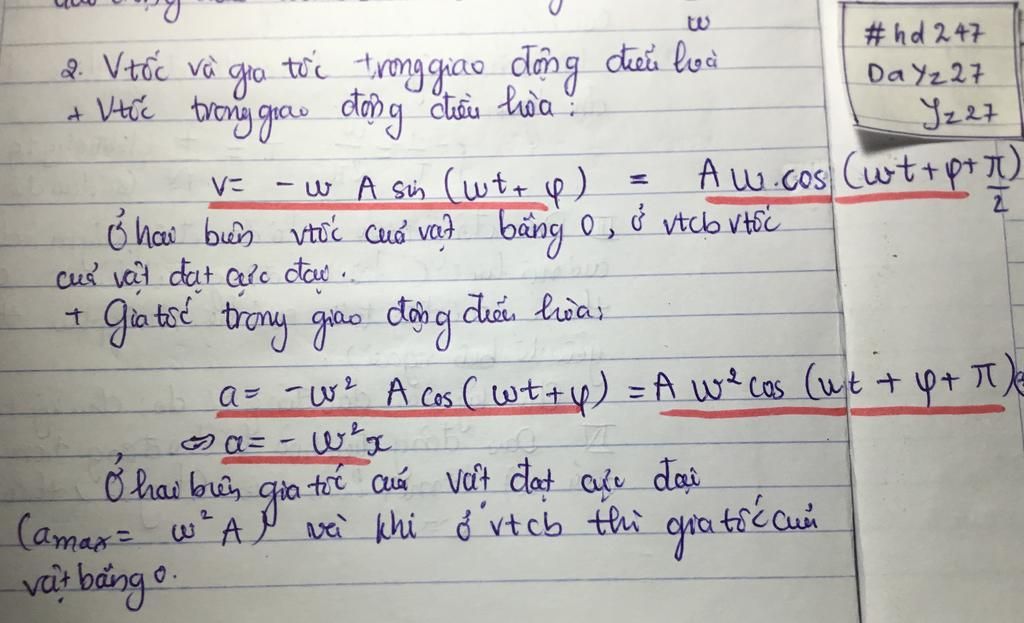 w
#hd247
DaYz27
Yz27
2. Vtốc và gia tốc trong giao động điều hoà
+ Vtốc trong giao động điều hòa:
v= -w A sin (wt+ φ) = A w.cos (wt+φ+π/2)
Ở hai biên vtốc của vật bằng 0, ở vtcb vtốc
của vật đạt cực đại.
+ Gia tốc trong giao động điều hòa:
a= -w² A cos(wt+φ) = A w² cos (wt + φ + π)
⇔ a= - w²x
Ở hai biên gia tốc của vật đạt cực đại
(amax= w²A) và khi ở vtcb thì gia tốc của
vật bằng 0.